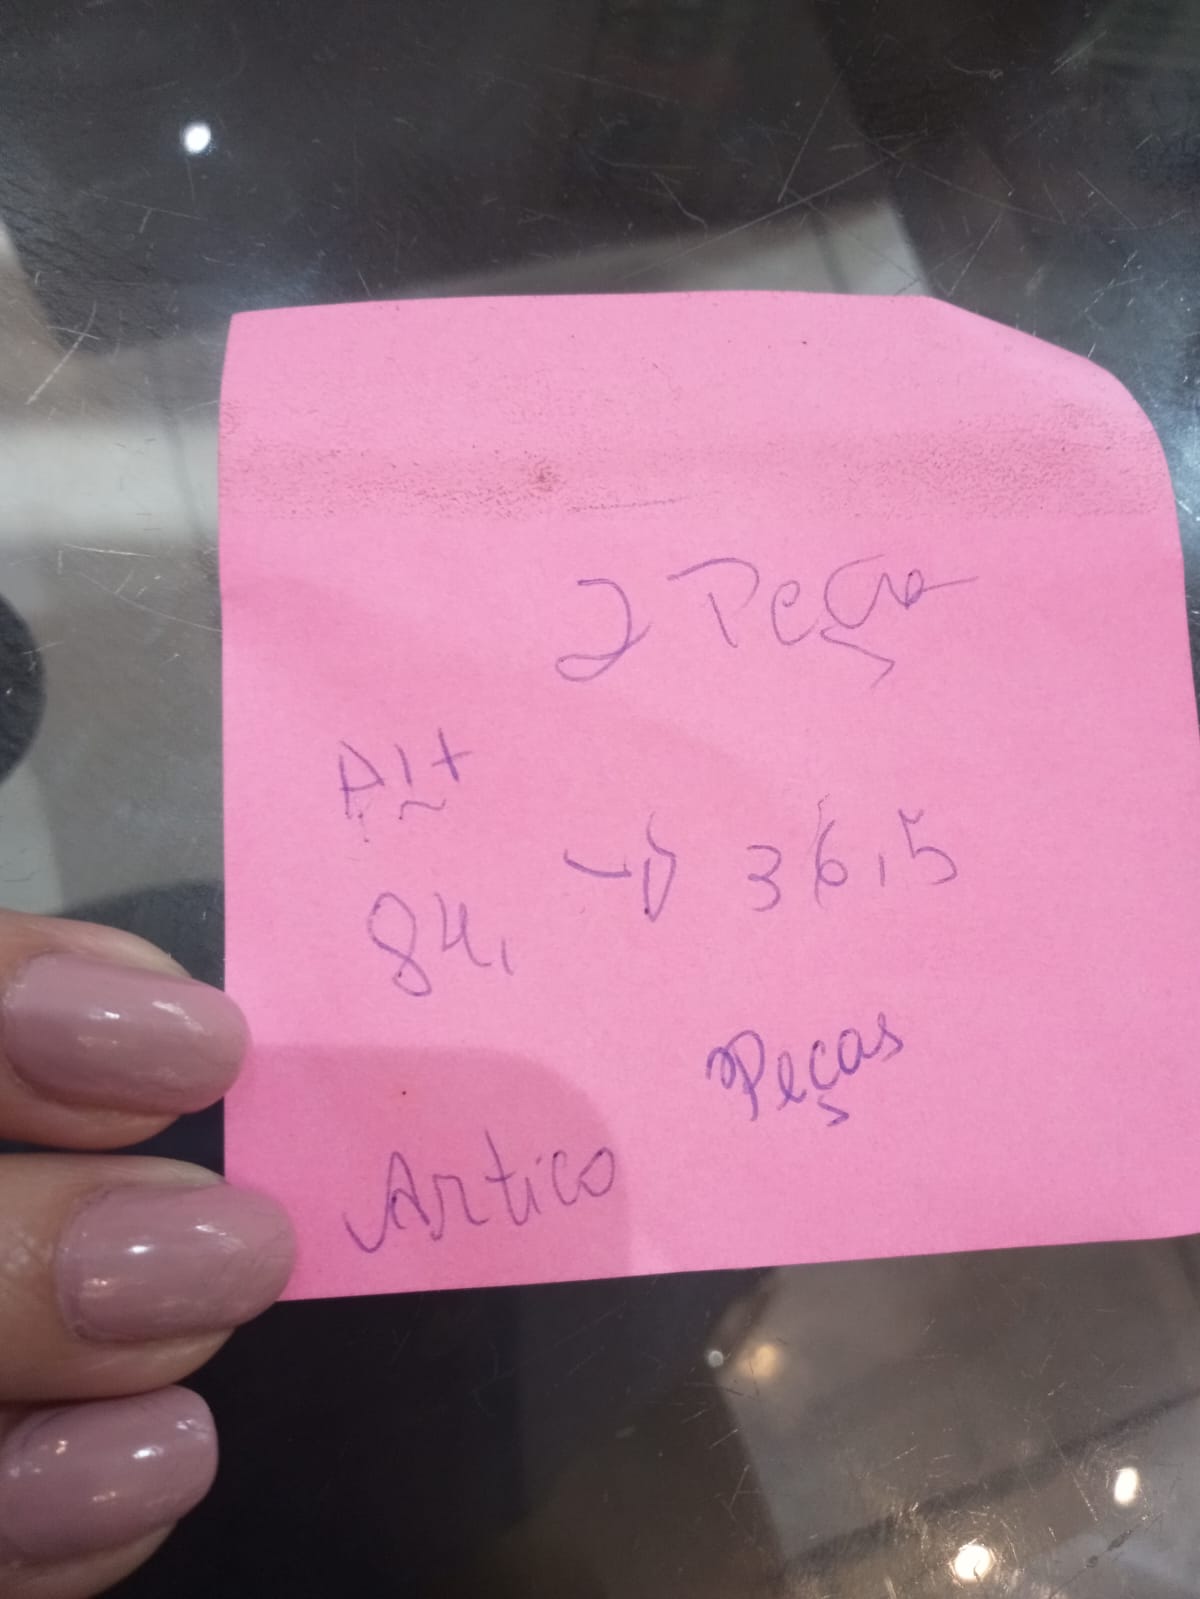 2 Peça
Alt
84, → 36,5
Peças
Artico